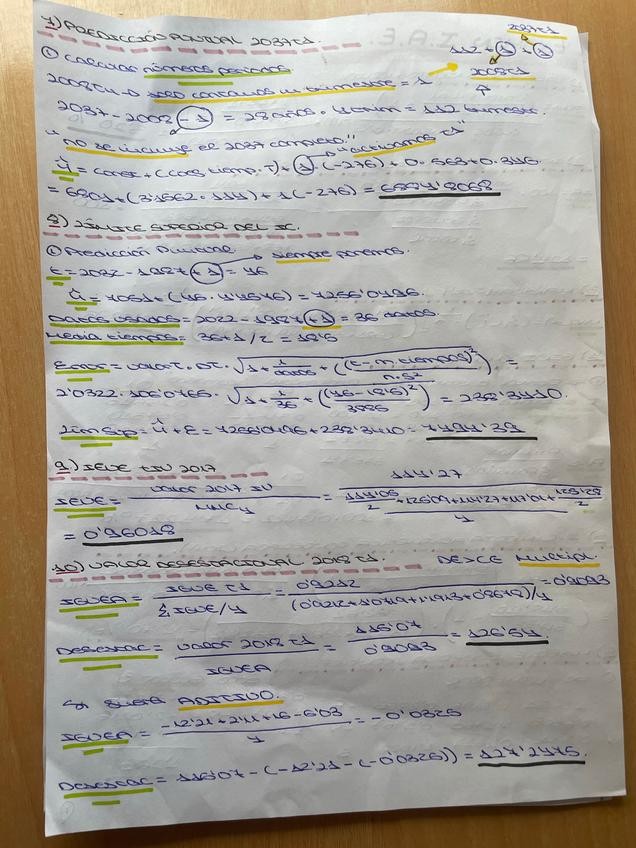 7) PREDICCIÓN PUNTUAL 2037T1.
2037T1
112 + 1 + 1
① Calcular números periodos
2008T1
2008T4 → solo contamos un trimestre = 1
2037 - 2008 - 1 = 28 años · 4 trim = 112 trimest.
"no se incluye el 2037 completo." "activamos T1"
Û = const + (coef tiemp. T) + 1 · (-276) + 0 · 563 + 0 · 346
= 6801 + (3'1662 · 114) + 1 (-276) = 6884'8068
8) LÍMITE SUPERIOR DEL IC.
① Predicción Puntual. siempre ponemos.
t = 2032 - 1987 + 1 = 46
Û = 7051 + (46 · 4'4576) = 7256'0496
Datos usados = 2022 - 1987 + 1 = 36 datos.
Media tiempos = 36 + 1 / 2 = 18'5
Error = valor T · DT · √ 1 + 1/datos + ((t - m. tiempos)² / n · S²) =
2'0322 · 106'0766 · √ 1 + 1/36 + ((46 - 18'5)² / 3885) = 238'3410.
Lím Sup = Û + E = 7256'0496 + 238'3410 = 7494'39
9) IEVE T3V 2017
IEVE = valor 2017 IV / MMCy = 114'27 / 114'06/2 + 126'09 + 114'27 + 117'01 + 123'28/2 / 4
= 0'96018
10) VALOR DESESTACIONAL 2018 T1. DESCE Multipl.
IGVEA = IGVE T1 / Σ IGVE/4 = 0'9212 / (0'9212 + 1'0719 + 1'1913 + 0'8678)/4 = 0'9093
Desestac = valor 2018 T1 / IGVEA = 116'07 / 0'9093 = 126'54.
Si fuera ADITIVO.
IGVEA = -12'21 + 2'11 + 16 - 6'03 / 4 = -0'0325
Desestac = 116'07 - (-12'21 - (-0'0325)) = 127'2475.